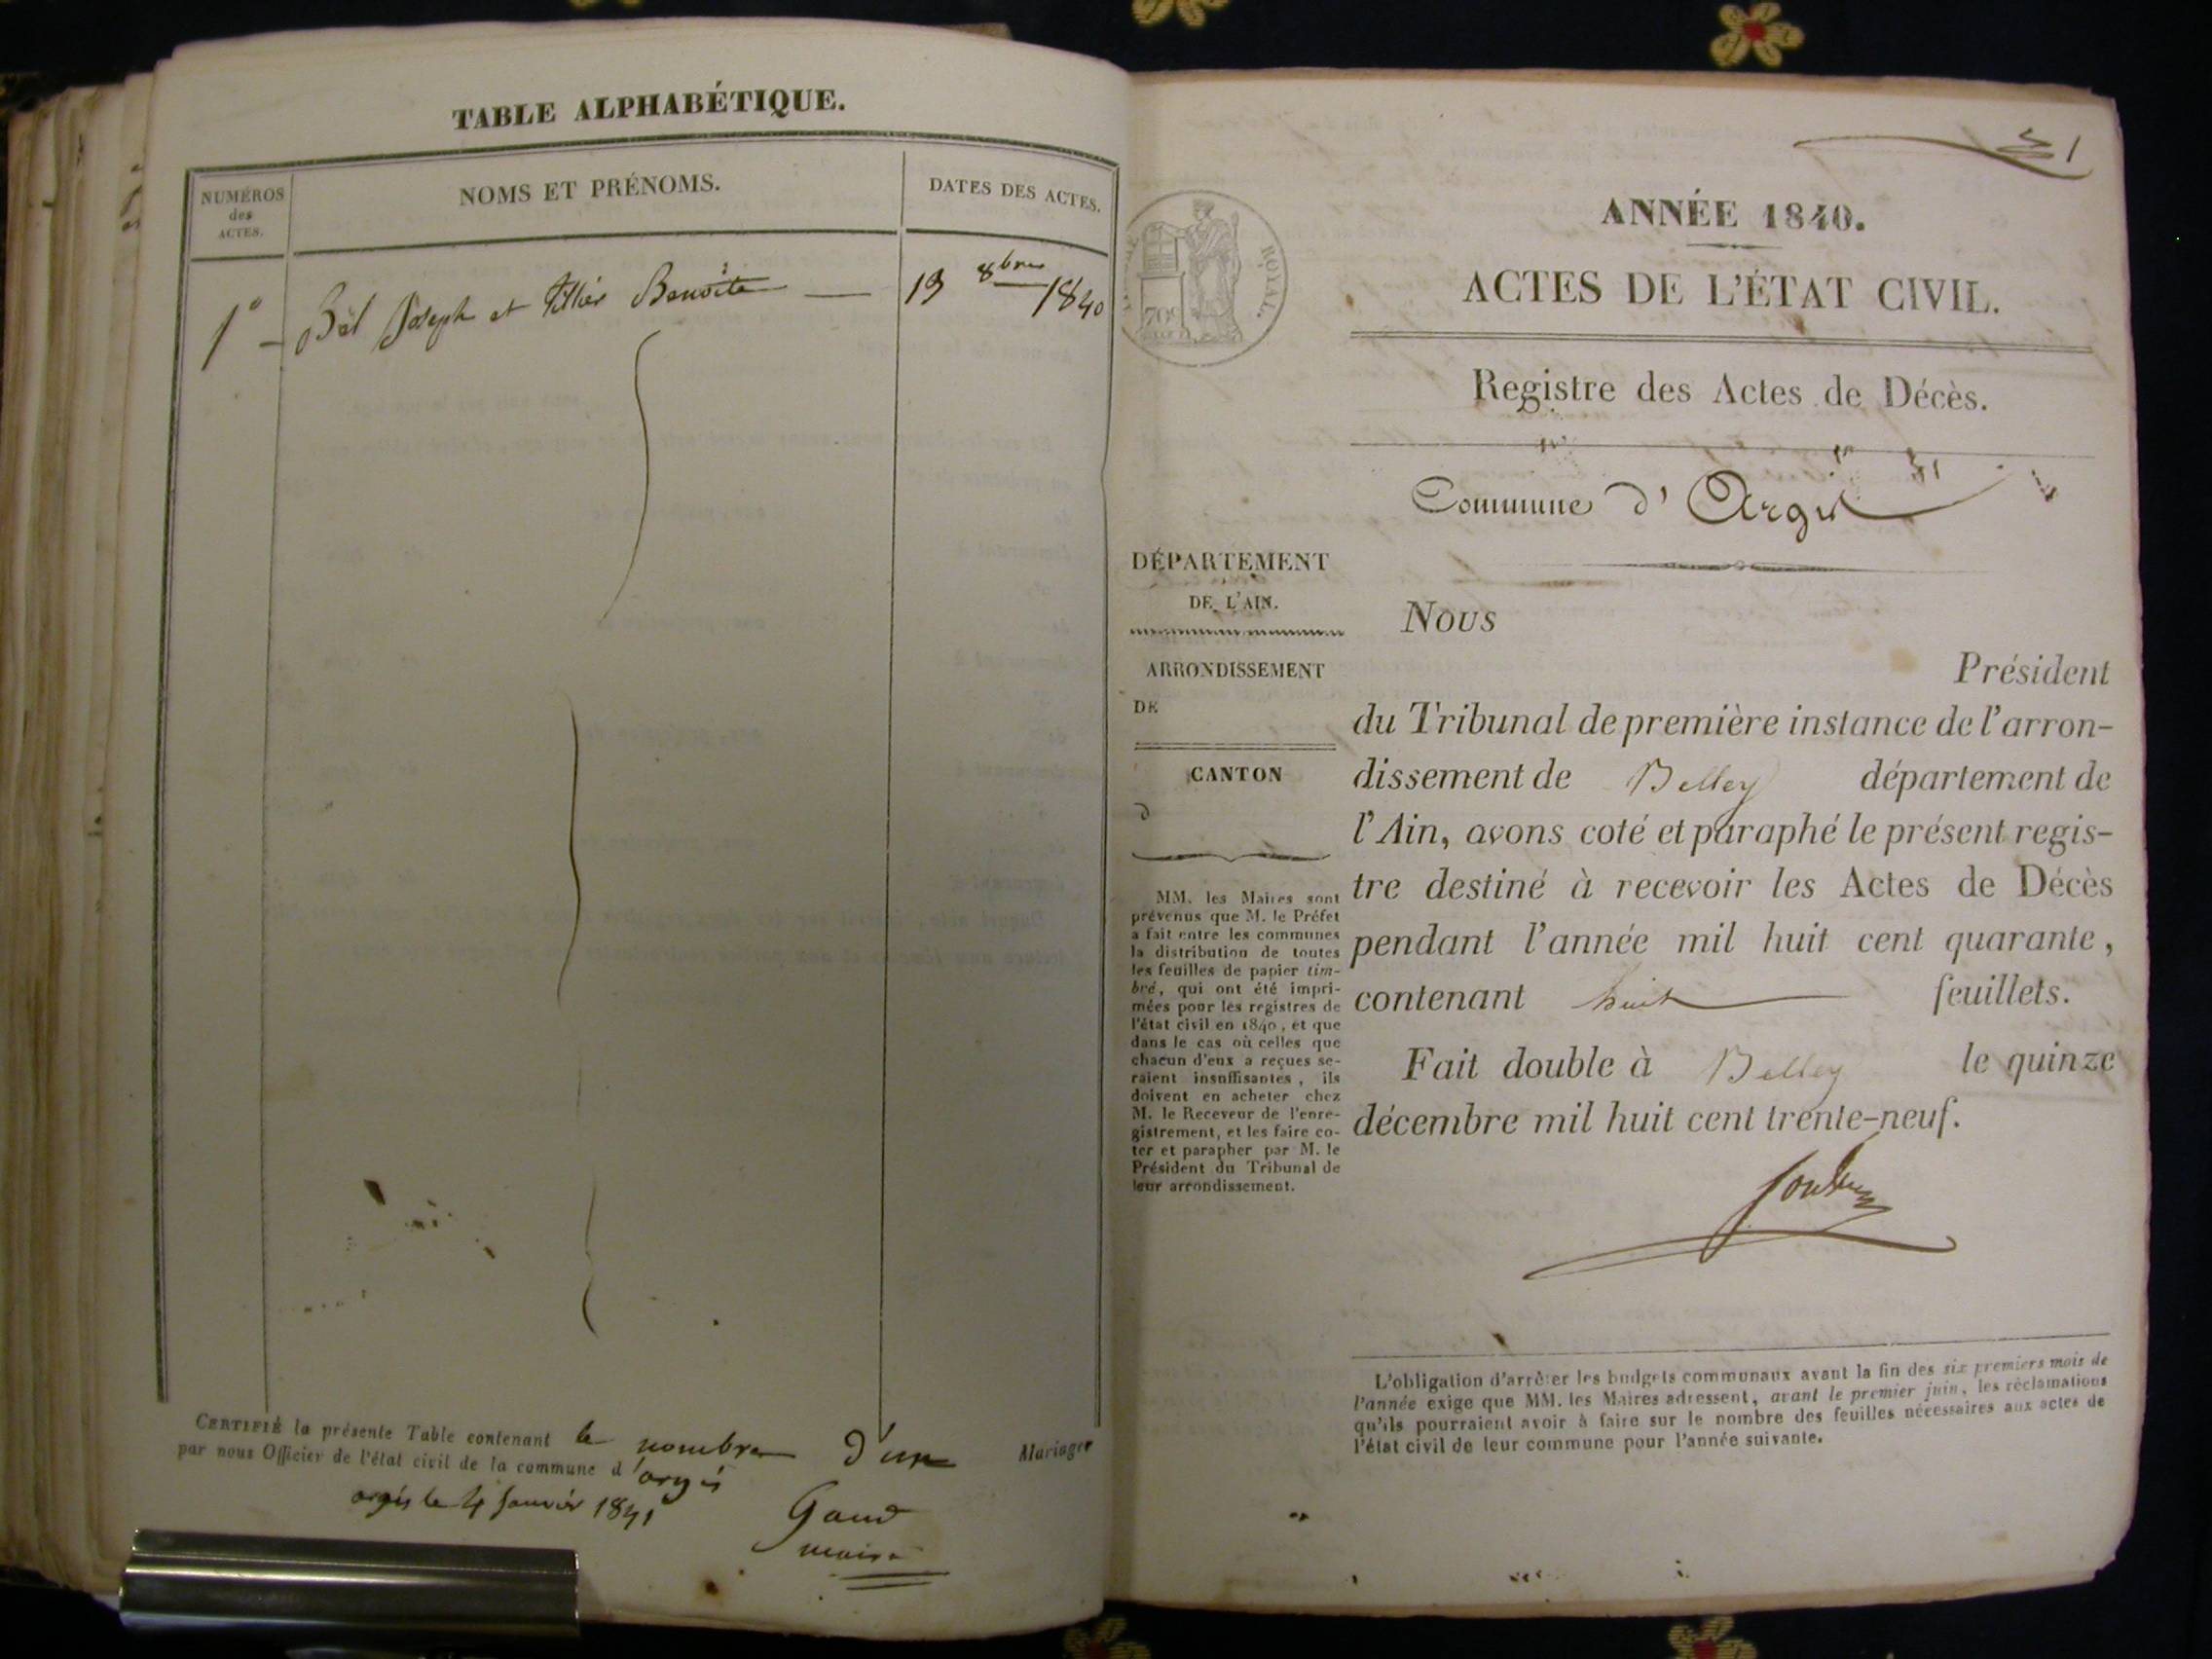 TABLE ALPHABÉTIQUE.
NUMÉROS
des
ACTES.
NOMS ET PRÉNOMS.
DATES DES ACTES.
1° Joseph et Benoîte 13 8bre 1840
CERTIFIÉ la présente Table contenant le nombre d'un Mariages
par nous Officier de l'état civil de la commune d'argis
argis le 4 Janvier 1841
Gaud
maire
1
ANNÉE 1840.
ACTES DE L'ÉTAT CIVIL.
ROYAL.
70c
Registre des Actes de Décès.
Commune d'Argis
DÉPARTEMENT
DE L'AIN.
ARRONDISSEMENT
DE
CANTON
d
MM. les Maires sont
prévenus que M. le Préfet
a fait entre les communes
la distribution de toutes
les feuilles de papier tim-
bré, qui ont été impri-
mées pour les registres de
l'état civil en 1840, et que
dans le cas où celles que
chacun d'eux a reçues se-
raient insuffisantes, ils
doivent en acheter chez
M. le Receveur de l'enre-
gistrement, et les faire co-
ter et parapher par M. le
Président du Tribunal de
leur arrondissement.
Nous
Président
du Tribunal de première instance de l'arron-
dissement de Belley département de
l'Ain, avons coté et paraphé le présent regis-
tre destiné à recevoir les Actes de Décès
pendant l'année mil huit cent quarante,
contenant huit feuillets.
Fait double à Belley le quinze
décembre mil huit cent trente-neuf.
L'obligation d'arrêter les budgets communaux avant la fin des six premiers mois de
l'année exige que MM. les Maires adressent, avant le premier juin, les réclamations
qu'ils pourraient avoir à faire sur le nombre des feuilles nécessaires aux actes de
l'état civil de leur commune pour l'année suivante.